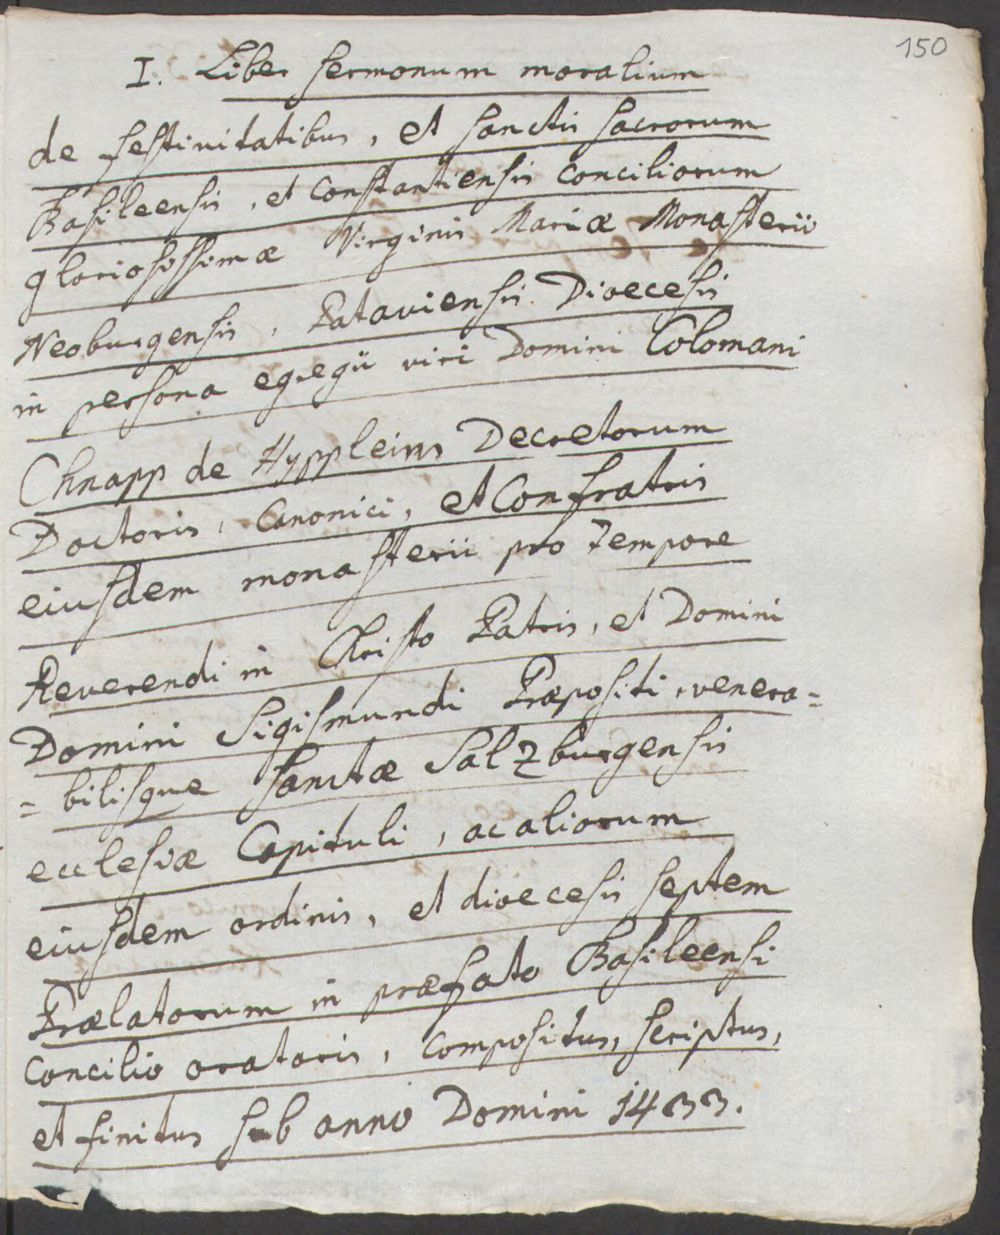 150
I. Liber sermonum moralium
de festivitatibus, et sanctis sacrorum
Basileensis, et Constantiensis Conciliorum
gloriosissimæ Virginis Mariæ Monasterii
Neoburgensis, Pataviensis Dioecesis
in persona egregii viri Domini Colomani
Chnapp de Hyppleins Decretorum
Doctoris, Canonici, et Confratris
eiusdem monasterii pro tempore
Reverendi in Christo Patris, et Domini
Domini Sigismundi Præpositi, venera=
=bilisque sanctæ Salzburgensis
ecclesiæ Capituli, ac aliorum
eiusdem ordinis, et dioecesis septem
Prælatorum in præfato Basileensi
Concilio oratoris, compositus, scriptus,
et finitus sub anno Domini 1433.